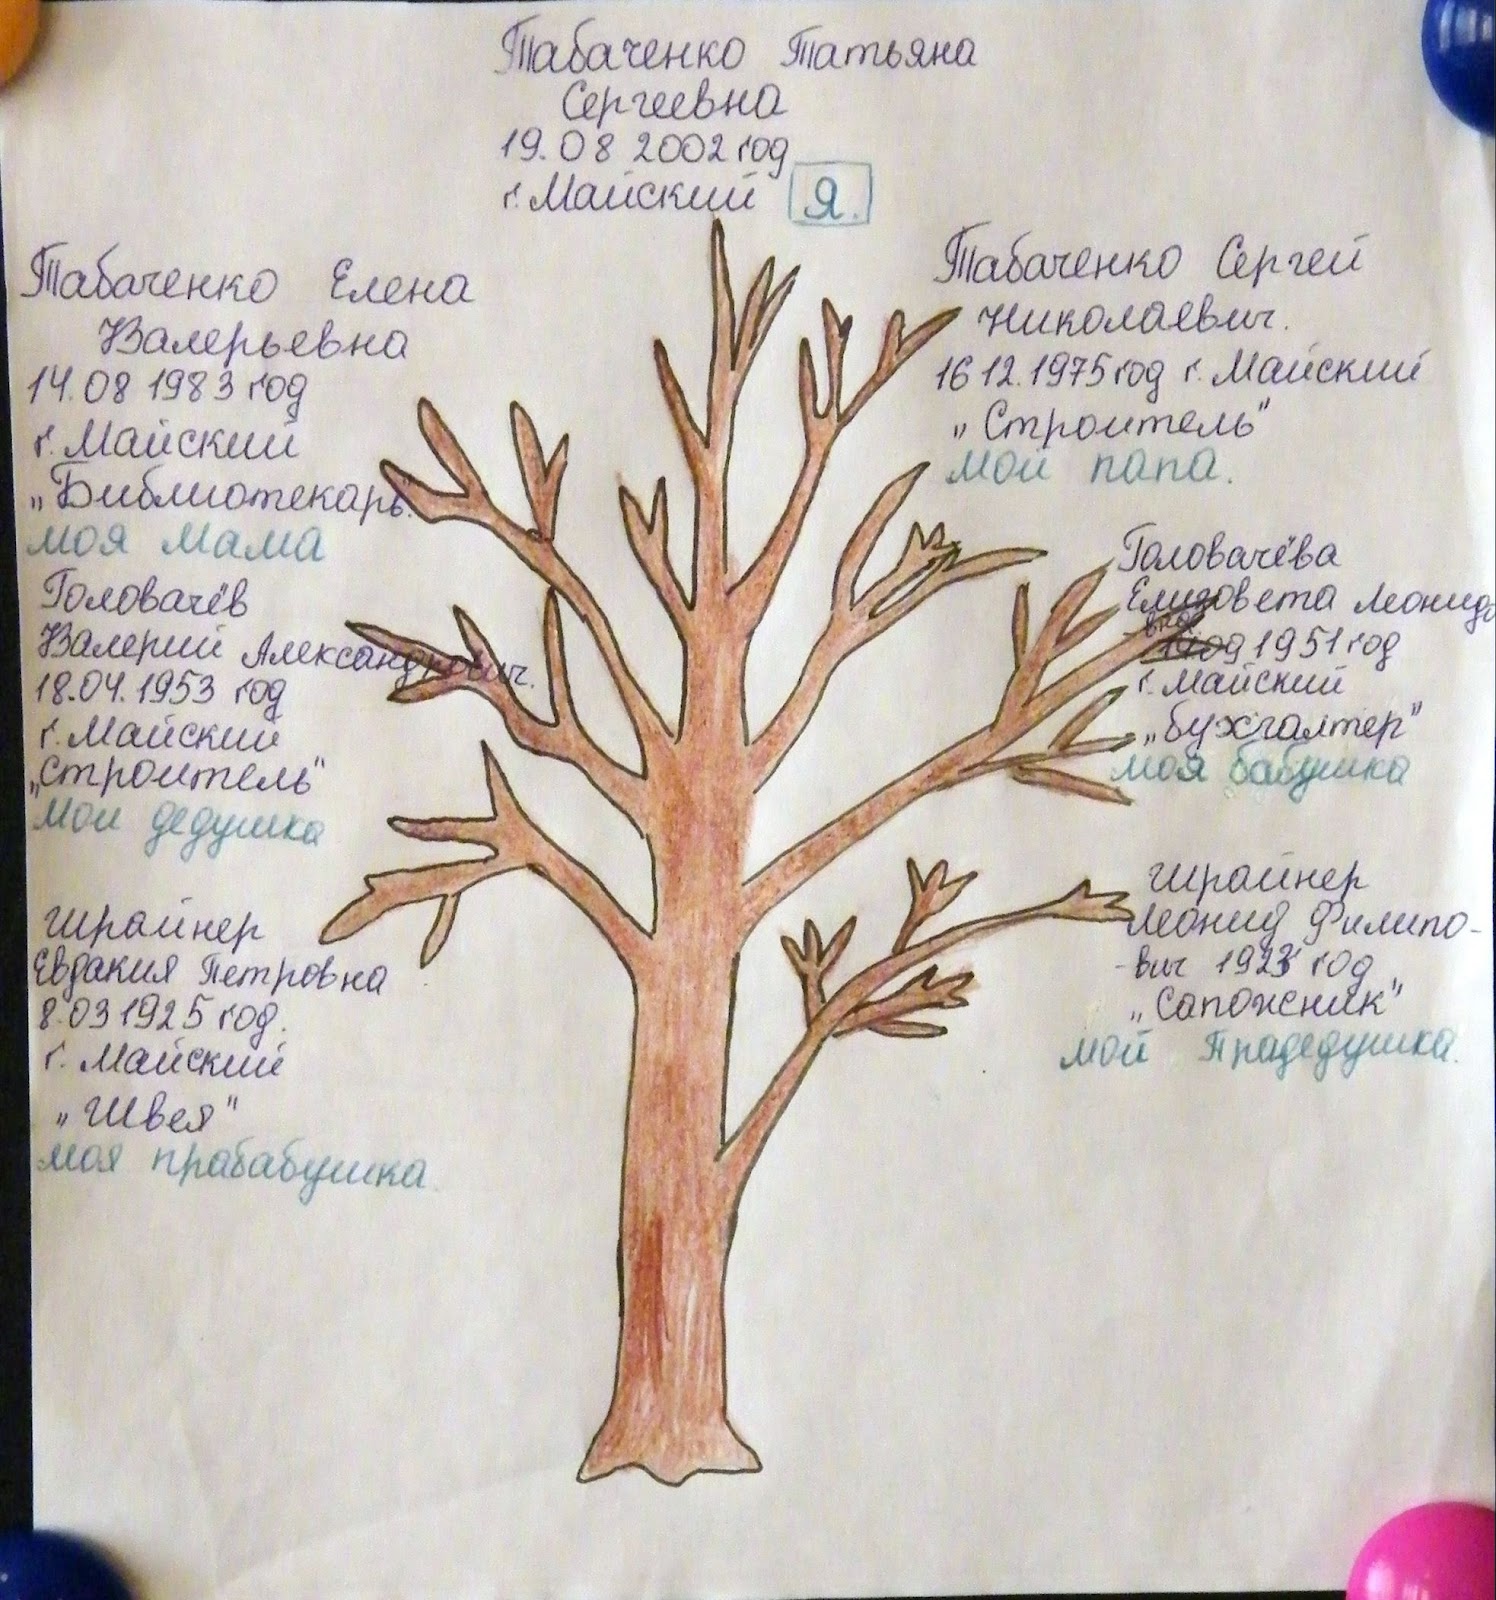 Табаченко Татьяна
Сергеевна
19.08 2002 год
г. Майский Я.
Табаченко Елена
Валерьевна
14.08 1983 год
г. Майский
„Библиотекарь"
моя мама
Головачёв
Валерий Александрович.
18.04.1953 год
г. Майский
„Строитель"
мой дедушка
Шрайнер
Евдакия Петровна
8.03 1925 год.
г. Майский
„Швея"
моя прабабушка
Табаченко Сергей
Николаевич.
16 12.1975 год г. Майский
„Строитель"
мой папа.
Головачёва
Елизовета Леонидо
-вна
1951 год
г. Майский
„бухгалтер"
моя бабушка
Шрайнер
Леонид Филипо-
-вич 1923 год
„Сапожник"
мой Прадедушка.